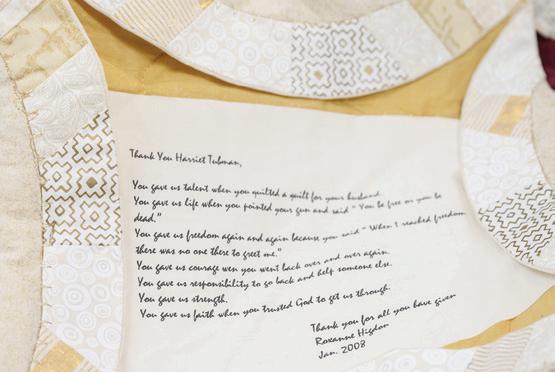 Thank You Harriet Tubman,
You gave us talent when you quilted a quilt for your husband.
You gave us life when you pointed your gun and said " You be free or you be
dead."
You gave us freedom again and again because you said " When I reached freedom
there was no one there to greet me."
You gave us courage wen you went back over and over again.
You gave us responsibility to go back and help someone else.
You gave us strength.
You gave us faith when you trusted God to get us through.
Thank you for all you have given
Roxanne Higdon
Jan. 2008